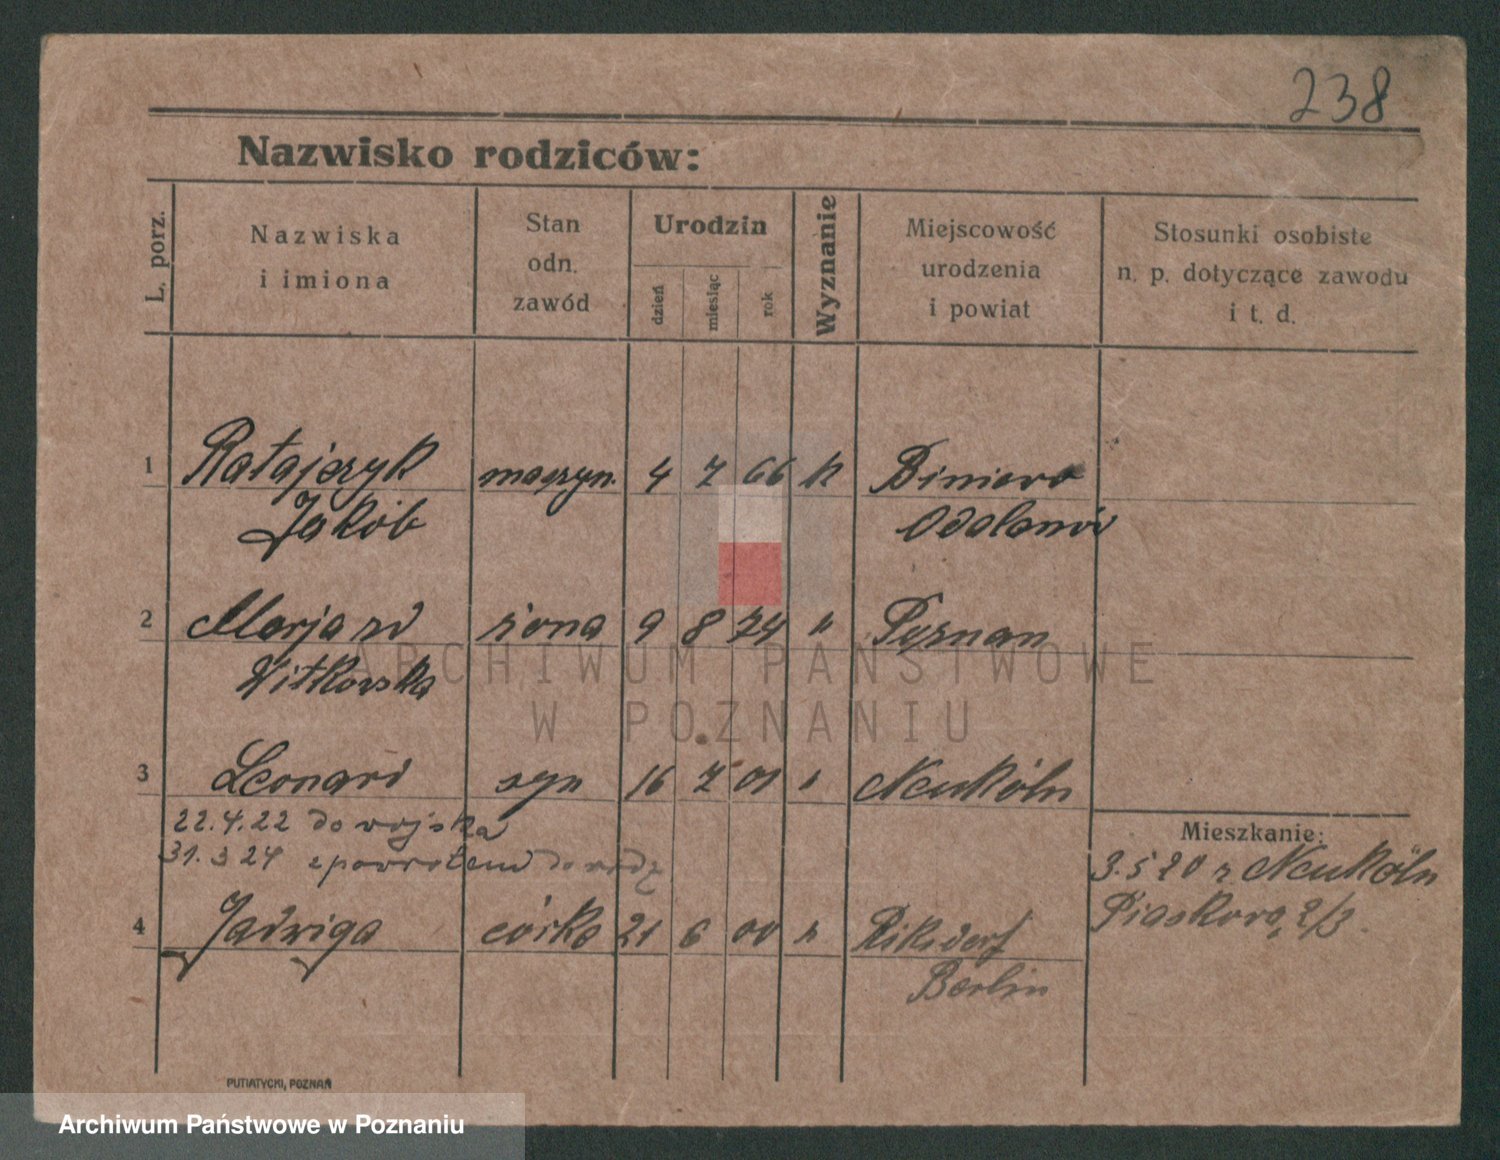 238
Nazwisko rodziców:
L. porz.
Nazwiska
i imiona
Stan
odn.
zawód
Urodzin
dzień
miesiąc
rok
Wyznanie
Miejscowość
urodzenia
i powiat
Stosunki osobiste
n. p. dotyczące zawodu
i t. d.
1 Ratajczyk maszyn. 4 7 66 k Biniew
Jakób Odolanów
2 Marja zd żona 9 8 74 " Poznan
Witkowska
3 Leonard syn 16 7 01 " Neuköln
22.4.22 do wojska
31.3 24 z powrotem do rodz
Mieszkanie:
3.5 20 z Neuköln
Piaskowa 2/3.
4 Jadwiga córka 21 6 00 " Riksdorf
Berlin
PUTIATYCKI, POZNAŃ
ARCHIWUM PAŃSTWOWE
W POZNANIU
Archiwum Państwowe w Poznaniu